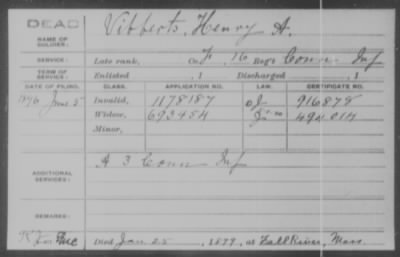 DEAD
NAME OF SOLDIER: Vibberts, Henry A.
SERVICE: Late rank, Co. F, 16 Reg't Conn Inf
TERM OF SERVICE: Enlisted , 1 Discharged , 1
DATE OF FILING. CLASS. APPLICATION NO. LAW. CERTIFICATE NO.
1896 June 5 Invalid, 1178187 916878
Widow, 693454 494014
Minor,
ADDITIONAL SERVICES: A 3 Conn Inf
REMARKS:
Died Jan 25, 1899, at Fall River, Mass